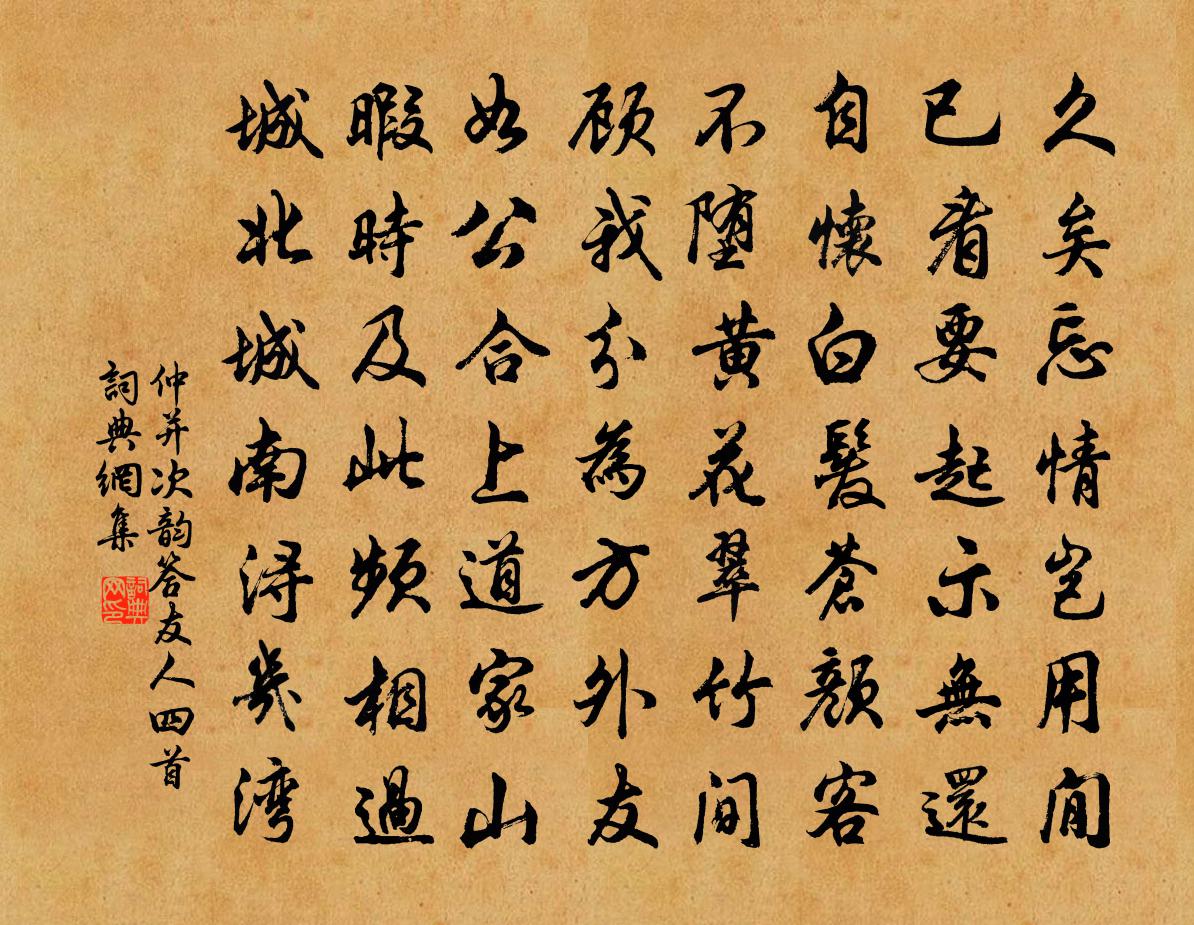 久矣忘情岂用閒
已看要起示無還
自懷白髮蒼顏客
不堕黄花翠竹间
顾我分為方外友
如公合上道家山
暇時及此频相過
城北城南得幾湾
仲并次韵答友人四首
詞典網集
詞典网印